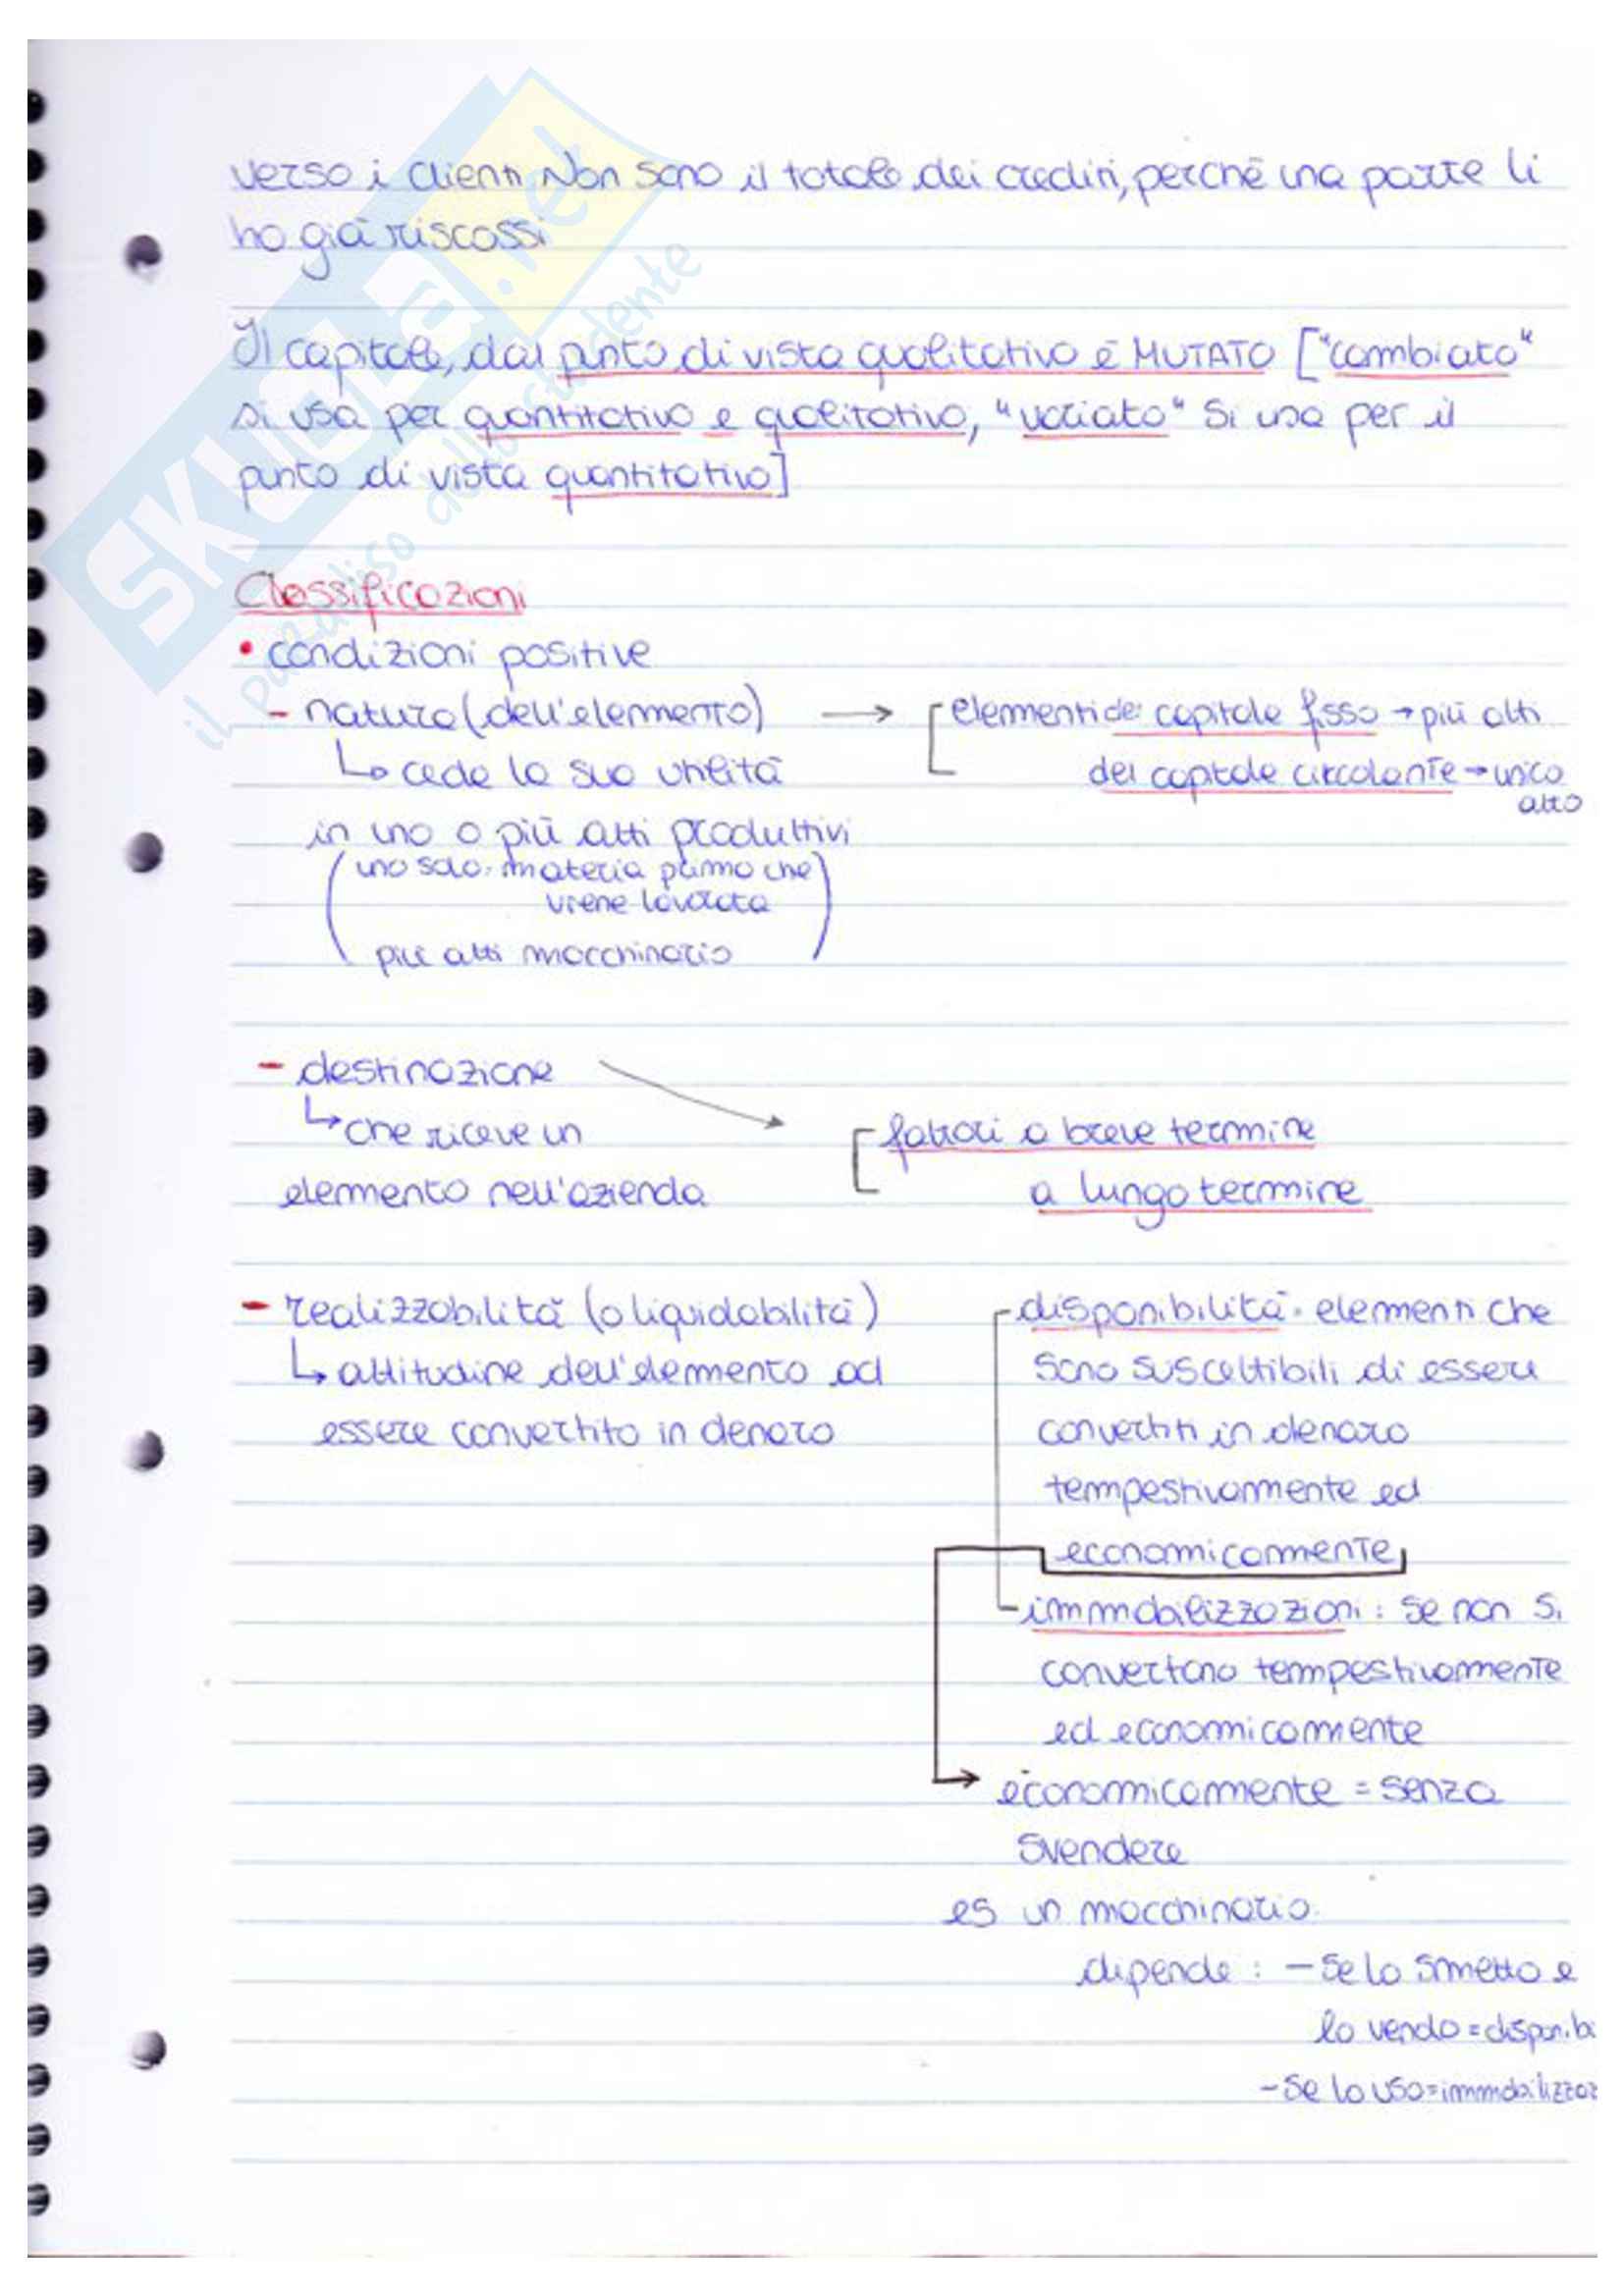 verso i clienti Non sono il totale dei crediti, perché una parte li
ho già riscossi
Il capitale, dal punto di vista qualitativo è MUTATO ["cambiato"
si usa per quantitativo e qualitativo, "variato" si usa per il
punto di vista quantitativo]
Classificazioni
• condizioni positive
- natura (dell'elemento) → elementi del capitale fisso → più atti
↳ cede la sua utilità del capitale circolante → unico
atto
in uno o più atti produttivi
(uno solo: materia prima che
viene lavorata
più atti macchinario)
- destinazione
↳ che riceve un fattori a breve termine
elemento nell'azienda a lungo termine
- realizzabilità (o liquidabilità) disponibilità: elementi che
↳ attitudine dell'elemento ad sono suscettibili di essere
essere convertito in denaro convertiti in denaro
tempestivamente ed
economicamente
immobilizzazioni: se non si
convertono tempestivamente
ed economicamente
→ economicamente = senza
svendere
es un macchinario.
dipende: - se lo smetto e
lo vendo = disponibi
- se lo uso = immobilizzaz
SKUOLA.net
il paradiso dello studente